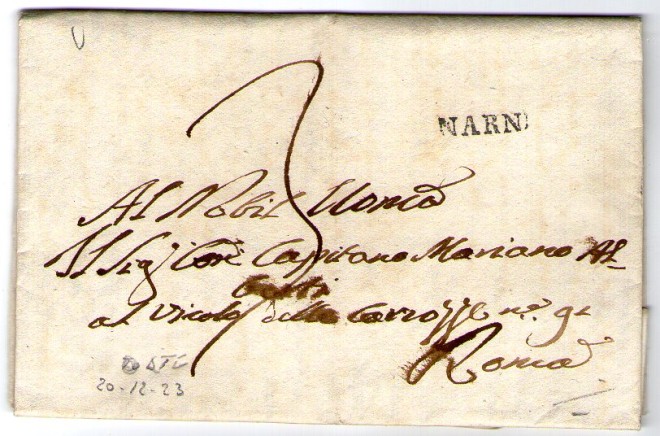 NARNI
3
Al Nobil Uomo
Il Sig. Cav. Capitano Mariano Al-
berti
al Vicolo delle Carrozze n.° 91
Roma
20-12-23